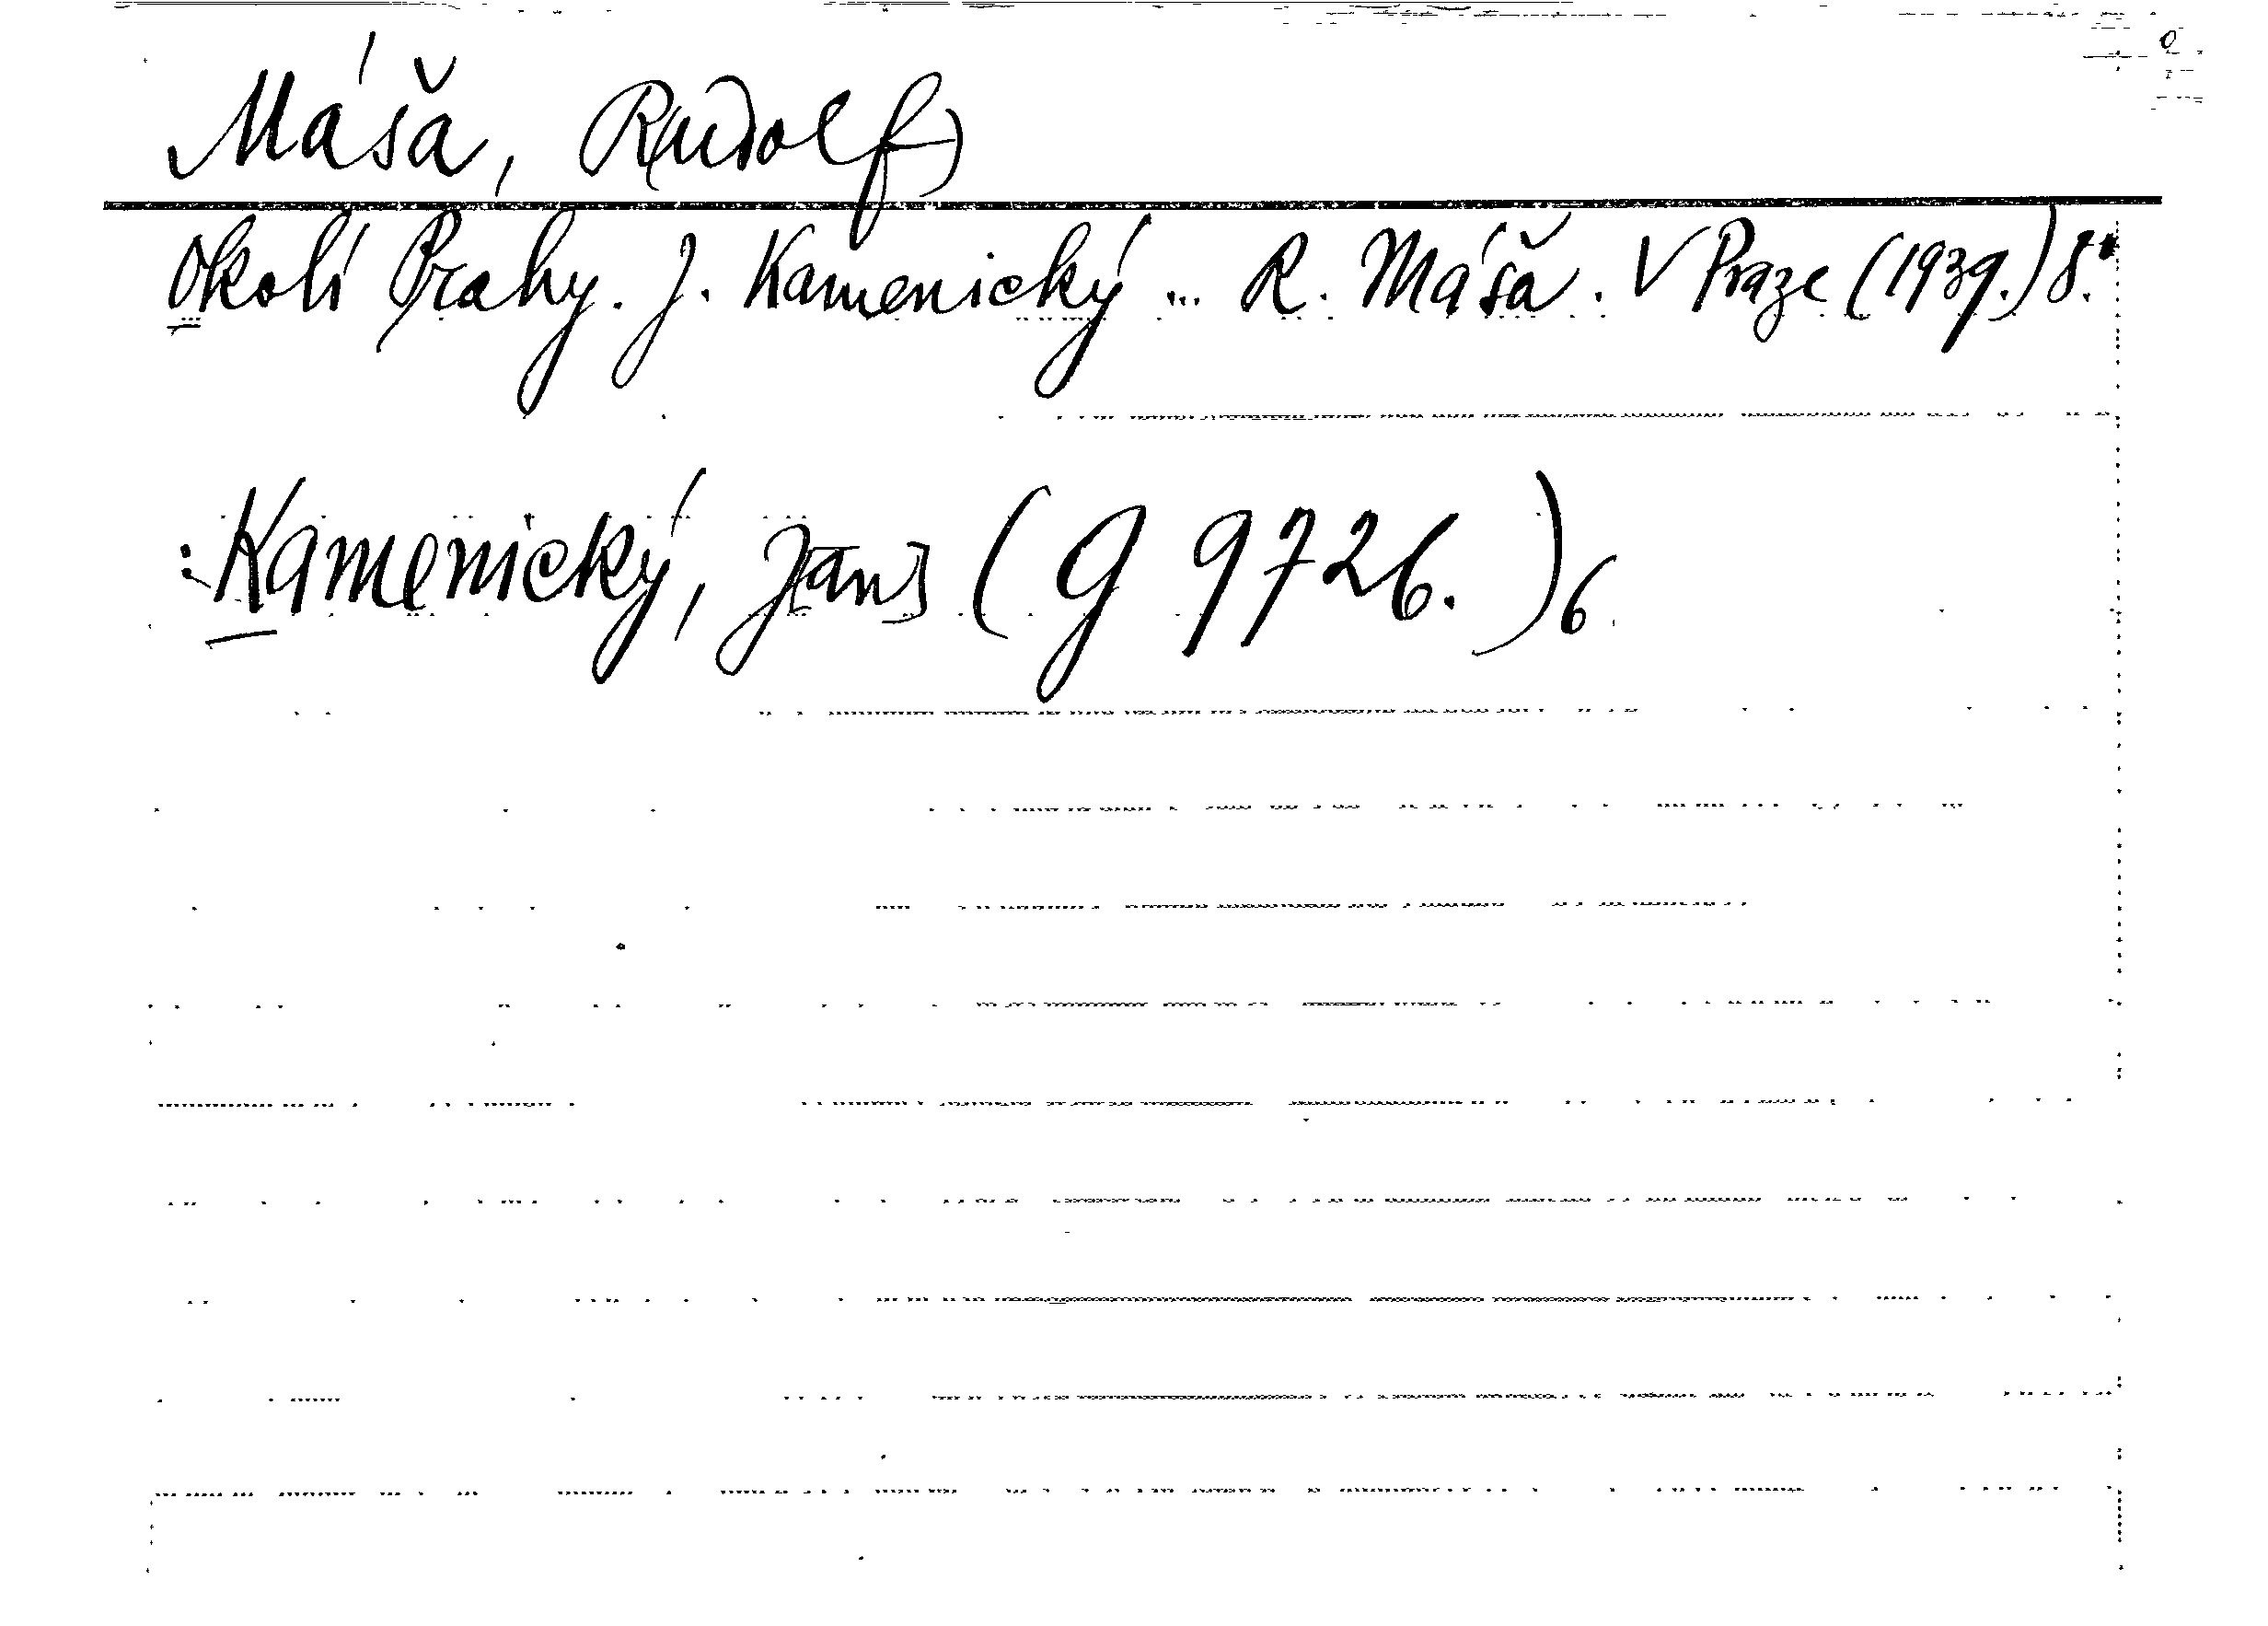 Máša, R(udolf)
Okolí Prahy. J. Kamenický ... R. Máša. V Praze (1939.) 8.°
: Kamenický, J[an] (G 9726.) 6